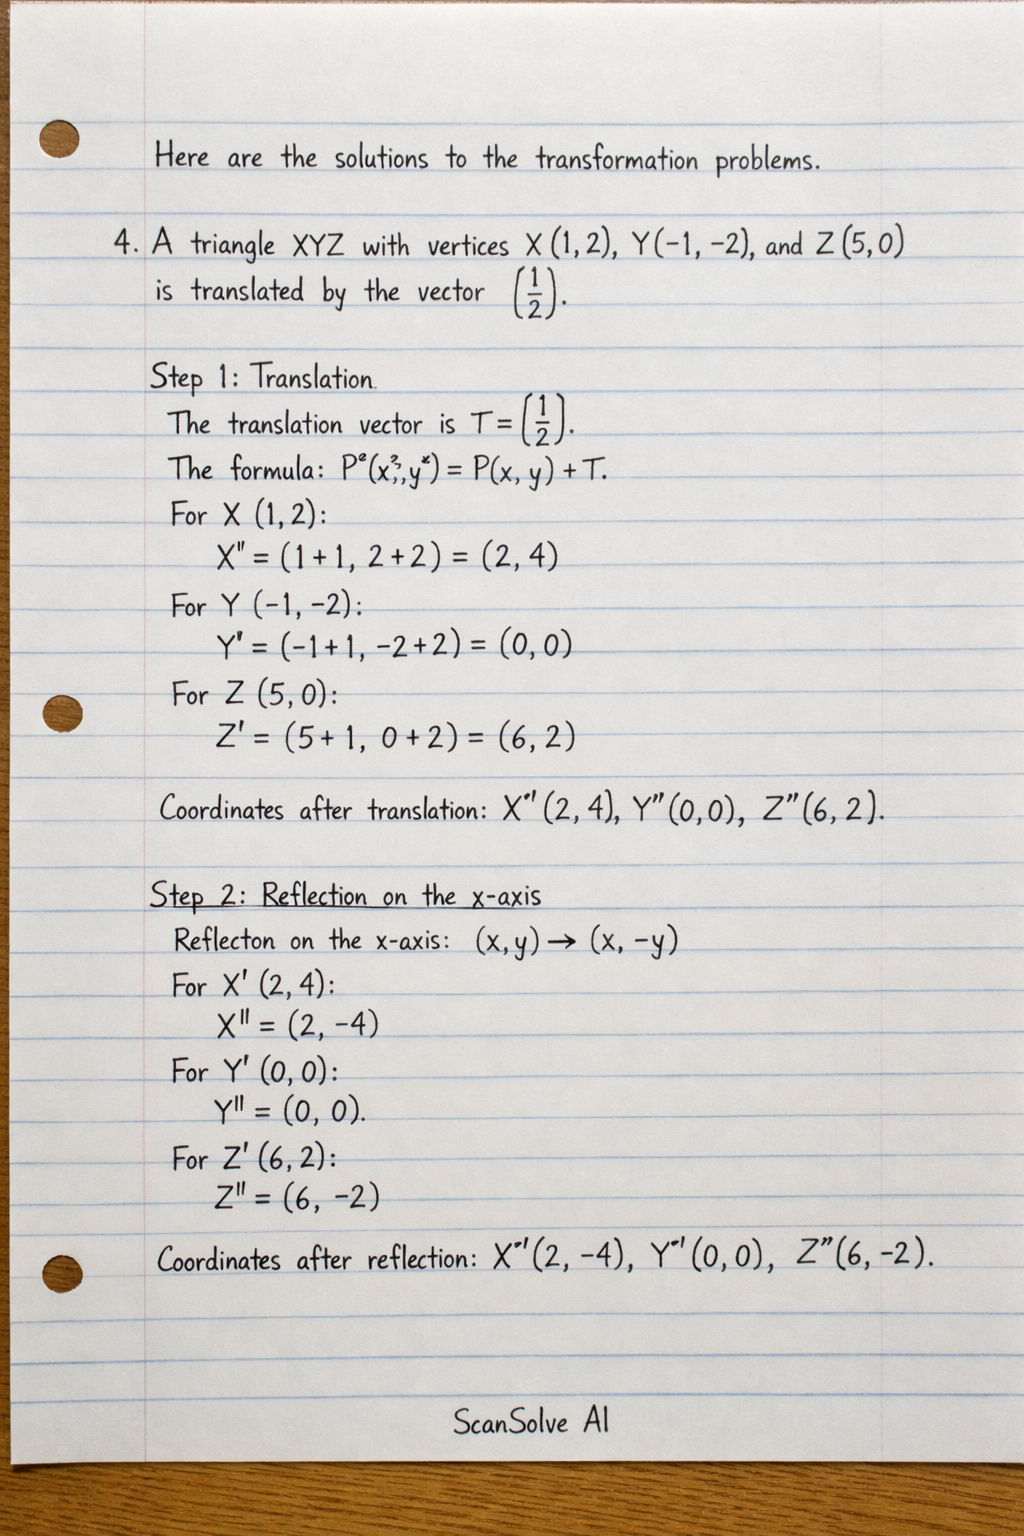 Here are the solutions to the transformation problems.
4. A triangle XYZ with vertices X (1, 2), Y(-1, -2), and Z (5, 0)
is translated by the vector (1/2).
Step 1: Translation.
The translation vector is T = (1/2).
The formula: P(x, y) = P(x, y) + T.
For X (1, 2):
X" = (1+1, 2+2) = (2, 4)
For Y (-1, -2):
Y' = (-1+1, -2+2) = (0, 0)
For Z (5, 0):
Z' = (5+1, 0+2) = (6, 2)
Coordinates after translation: X"(2, 4), Y"(0,0), Z"(6, 2).
Step 2: Reflection on the x-axis
Reflecton on the x-axis: (x, y) → (x, -y)
For X' (2, 4):
X" = (2, -4)
For Y' (0, 0):
Y" = (0, 0).
For Z' (6, 2):
Z" = (6, -2)
Coordinates after reflection: X"(2, -4), Y"(0, 0), Z"(6, -2).
ScanSolve AI